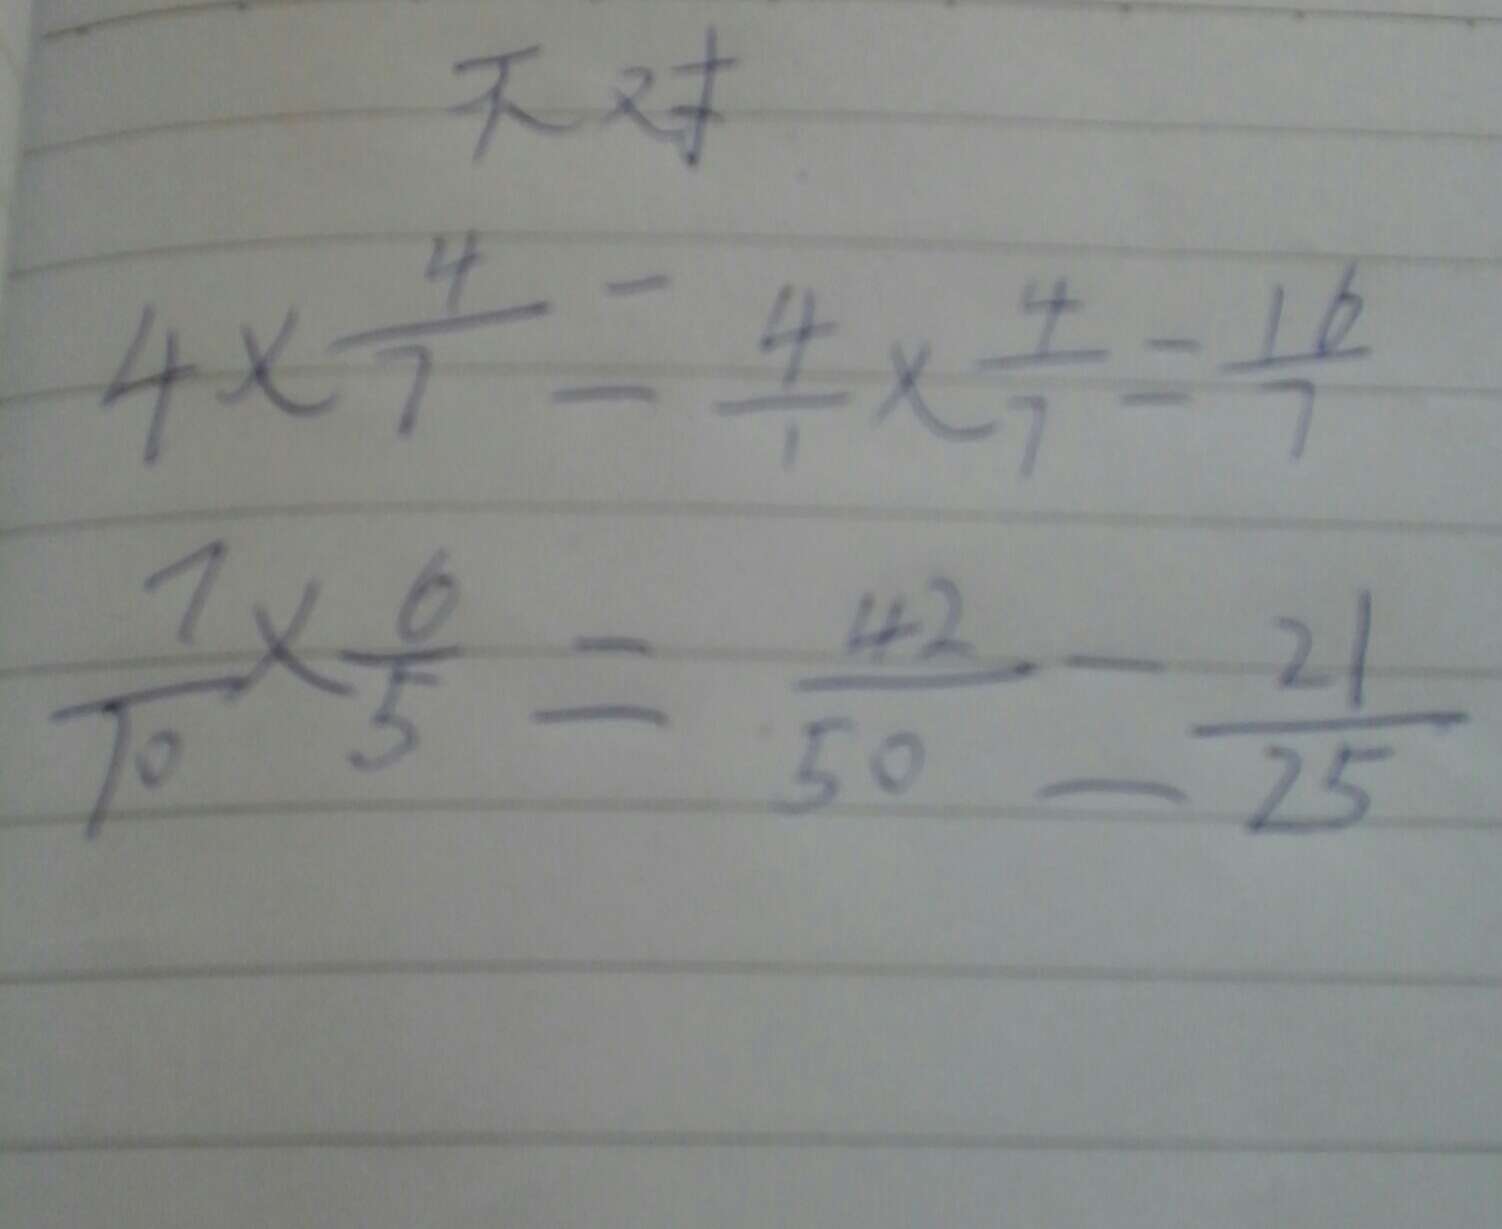 不对
4 × 4/7 = 4/1 × 4/7 = 16/7
7/10 × 6/5 = 42/50 = 21/25